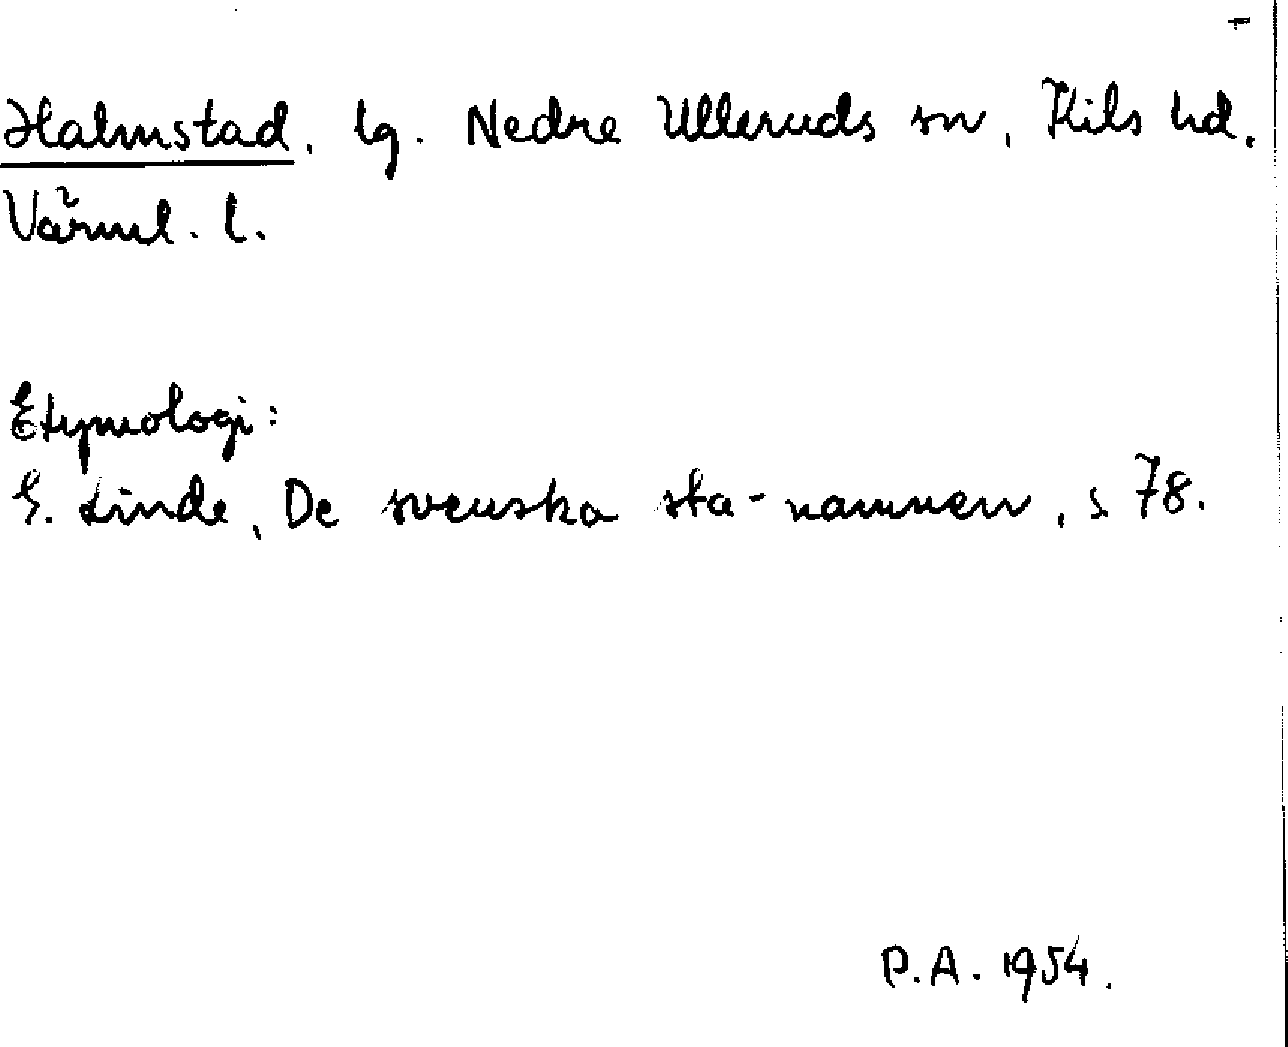 Halmstad, lg. Nedre Ulleruds sn, Kils hd.
Värml. l.
Etymologi:
G. Linde, De svenska sta-namnen, s 78.
P.A. 1954.